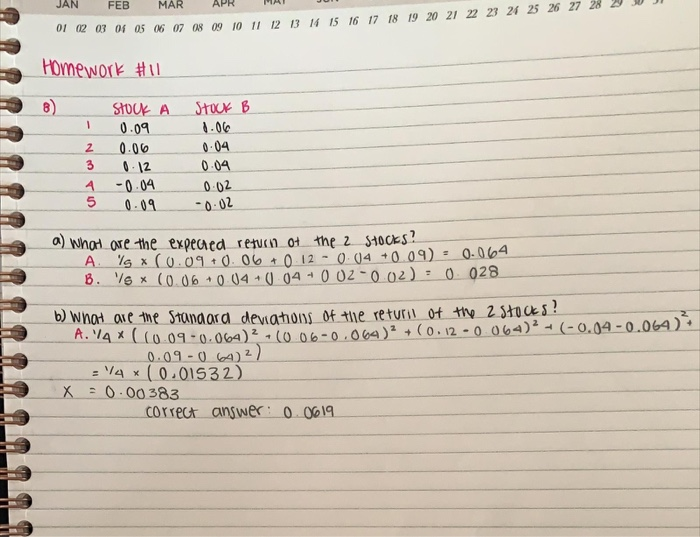 JAN FEB MAR APR MAY
01 02 03 04 05 06 07 08 09 10 11 12 13 14 15 16 17 18 19 20 21 22 23 24 25 26 27 28 29 30 31
Homework #11
8) Stock A Stock B
1 0.09 0.06
2 0.06 0.04
3 0.12 0.04
4 -0.04 0.02
5 0.09 -0.02
a) What are the expected return of the 2 stocks?
A. 1/5 x (0.09 + 0.06 + 0.12 - 0.04 + 0.09) = 0.064
B. 1/5 x (0.06 + 0.04 + 0.04 + 0.02 - 0.02) = 0.028
b) What are the Standard deviations of the return of the 2 stocks?
A. 1/4 x ((0.09 - 0.064)² + (0.06 - 0.064)² + (0.12 - 0.064)² + (-0.04 - 0.064)² +
0.09 - 0.64)²)
= 1/4 x (0.01532)
X = 0.00383
correct answer: 0.0619